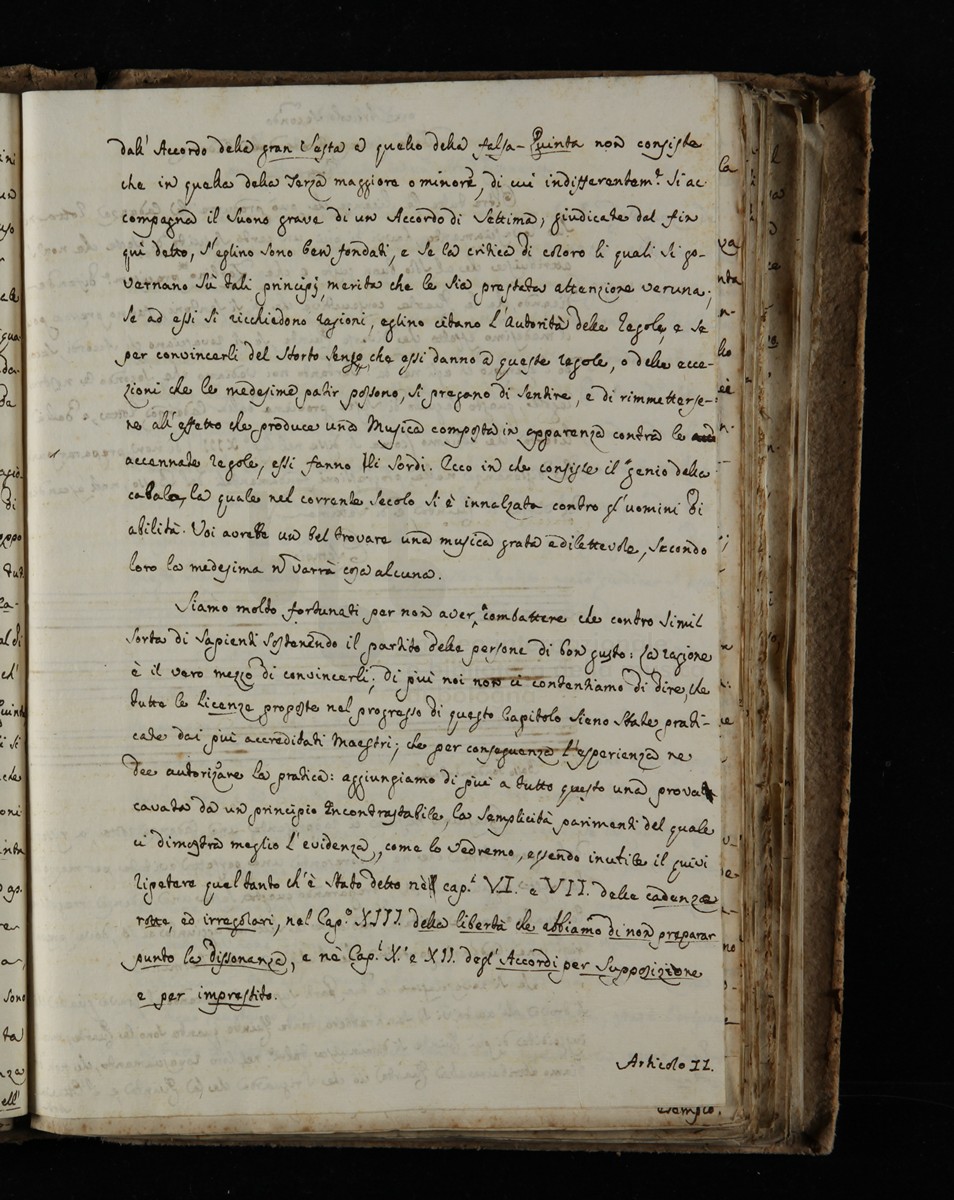 dall' Accordo della gran Sesta e quello della falsa-Quinta non consiste
che in quella della Terza maggiore o minore, di cui indifferentem.e si ac-
compagna il Suono grave di un Accordo di Settima; giudicate dal fin
quì detto, s'eglino sono ben fondati, e se la critica di coloro li quali si go-
vernano sù tali principj, merita che le sia prestata attenzione veruna;
Se ad essi si ricchiedono ragioni, eglino citano l'autorità delle Regole, e se
per convincerli del storto senso, che essi danno a queste regole, o delle ecce-
zioni che le medesime patir possono, si pregano di sentire, e di rimetterse-
ne all'effetto che produce una Musica composta in apparenza contra le
accennate regole, essi fanno li sordi. Ecco in che consiste il genio della
cabala, la quale nel corrente secolo si è innalzata contro gl'uomini di
abilità. Voi avrette un bel trovare una musica grata e dilettevole, secondo
loro la medesima n varrà cosa alcuna.
Siamo molto fortunati per non aver a combattere che contro simil
sorta di sapienti sostenendo il partito delle persone di bon gusto: la ragione
è il vero mezzo di convincerli; di più noi non ci contentiamo di dire, che
tutte le Licenze proposte nel progresso di questo Capitolo sieno state prati-
cate dai più accreditati Maestri; che per conseguenza l'esperienza ne
dee autorizare la pratica: aggiungiamo di più a tutto questo una prova
cavata da un principio Incontrastabile, la semplicità parimenti del quale
ci dimostra meglio l'evidenza, come lo vedremo, essendo inutile il quivi
ripetere quel tanto ch'è stato detto nè cap.i VI. e VII. delle cadenze
rotte, ed irregolari, nel Cap.o XIII della libertà che abbiamo di non preparar
punto le dissonanze, e nè Cap.i X. e XII. degl'Accordi per Supposizione
e per imprestito.
Articolo II.